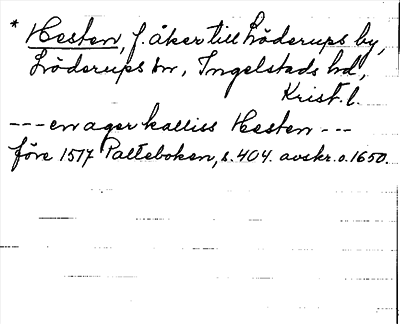 * Hesten, f. åker till Löderups by,
Löderups sn, Ingelstads hd,
Krist. l.
--- en ager kalliss Hesten ---
före 1517 Palteboken, s. 404. avskr. o. 1650.